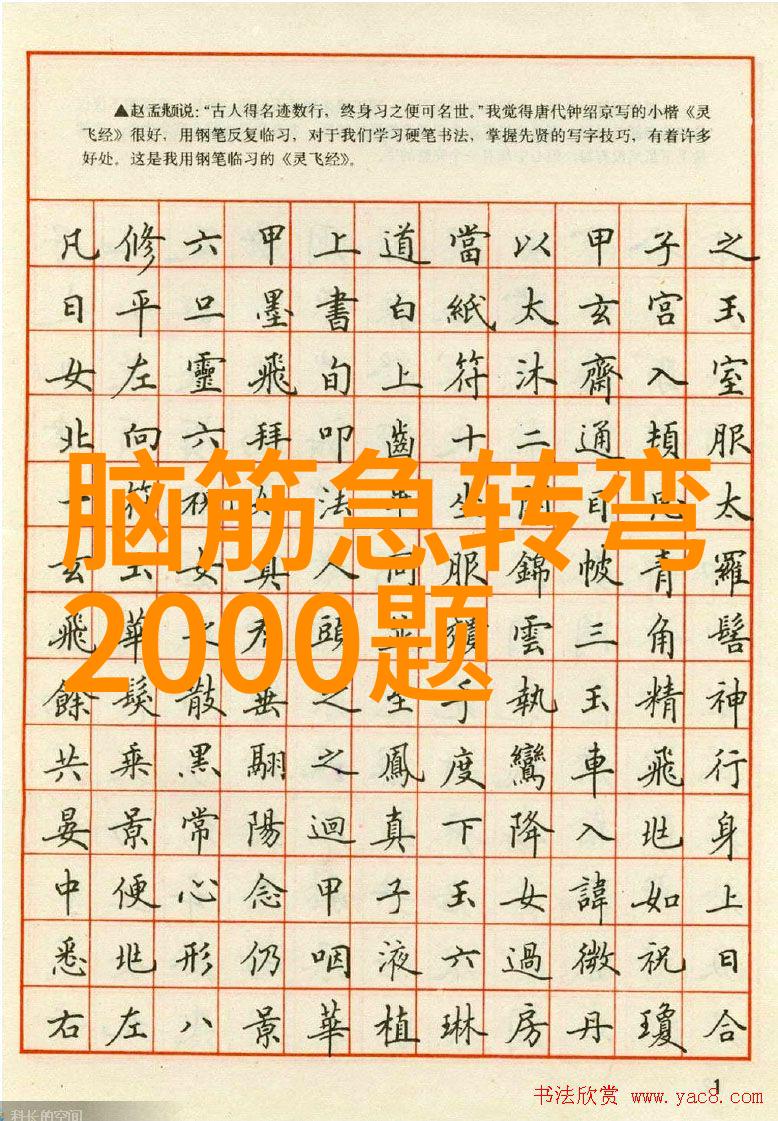 ▲赵孟頫说：“古人得名迹数行，终身习之便可名世。”我觉得唐代钟绍京写的小楷《灵
飞经》很好，用钢笔反复临习，对于我们学习硬笔书法，掌握先贤的写字技巧，有着许多
好处。这是我用钢笔临习的《灵飞经》。
凡修六甲上道當以甲子之
日平旦墨書白紙太玄宮玉
女左靈飛旬上符沐齋入室
北向六拜叩齒十二通頓服
一符祝如法畢坐閉目思太
脑筋急转弯
玄玉女真人同服錦帔青羅
飛華之君頭並頹雲三角髻
2000题
餘髮散垂之至手執玉精神
共乘黑翮之鳳度鸞車飛行
晏景常陽迴真下降入兆身
中便心念甲子玉女諱如上
悉兆形仍咽液六過微祝日
右左八景華植琳房丹瓊合
1
书法欣赏 www.yac8.com
科长的空间